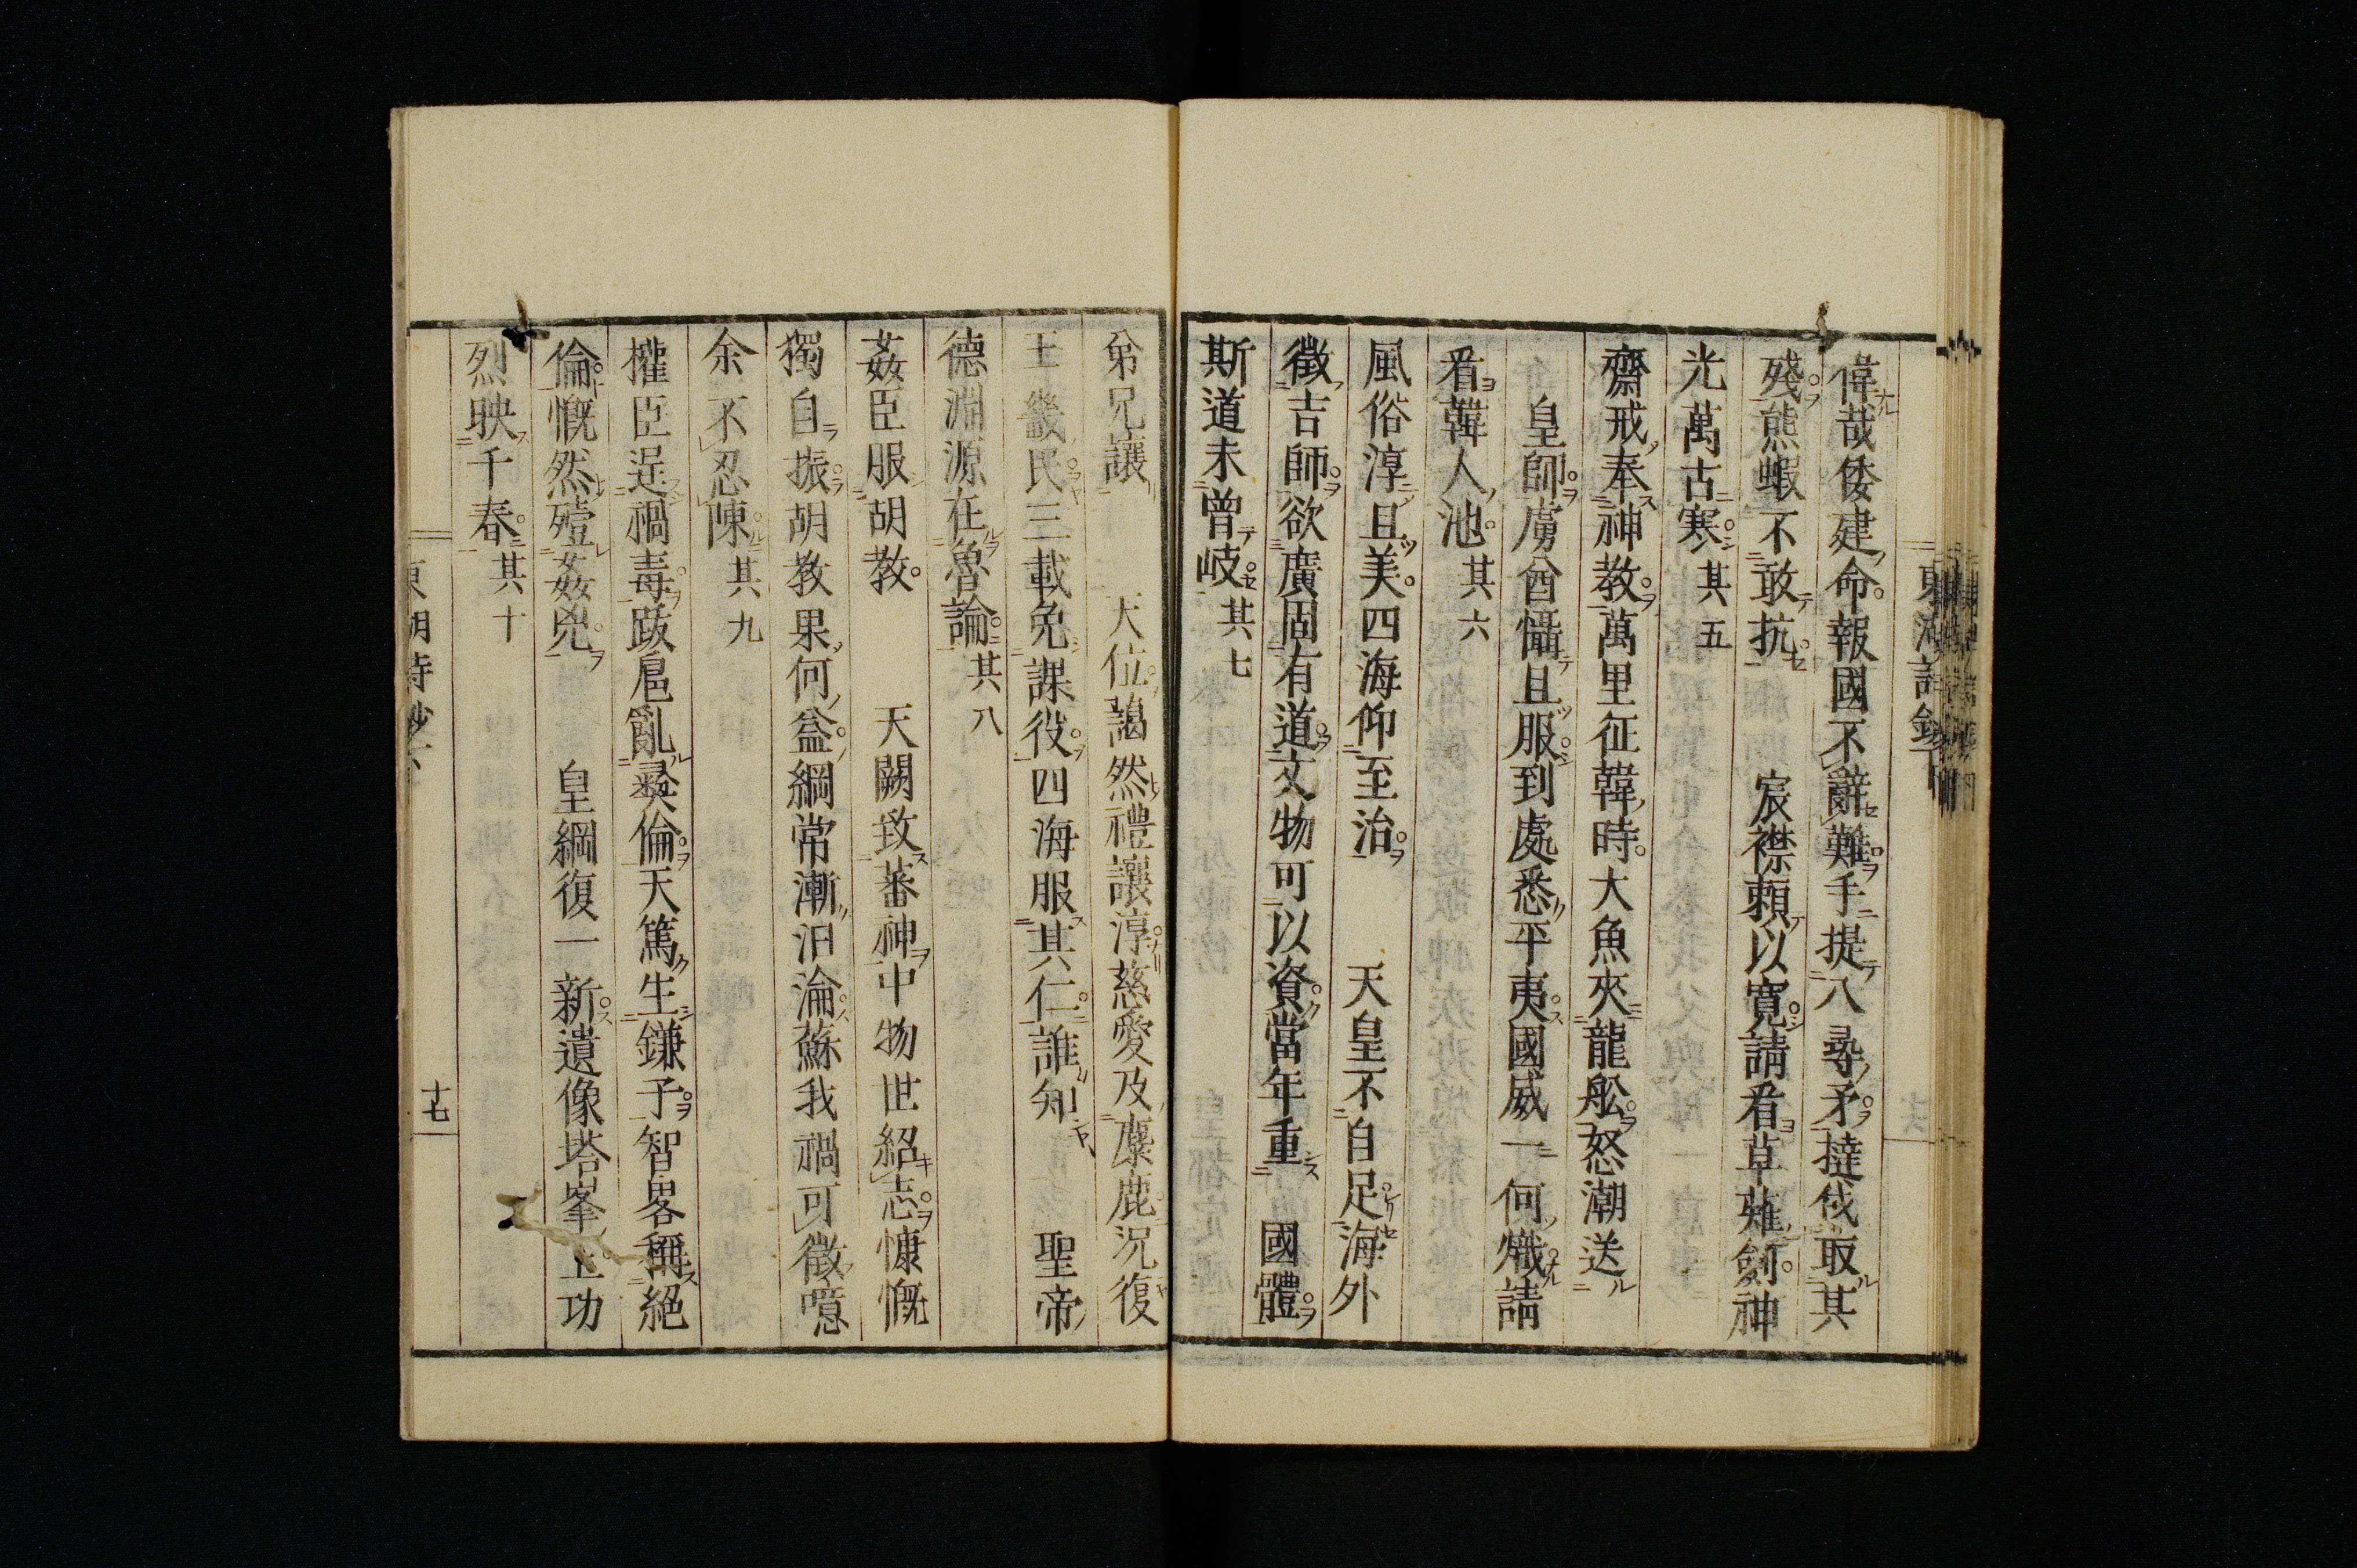 偉哉倭建命報國不辭難手提八尋矛撻伐取其
殘熊蝦不敢抗　宸襟頼以寬請看草薙劍神
光萬古寒其五
齋戒奉神教萬里征韓時大魚夾龍舩怒潮送
皇師虜酋懾且服到處悉平夷國威一何熾請
看韓人池其六
風俗淳且美四海仰至治　天皇不自足海外
徵吉師欲廣固有道文物可以資當年重　國體
斯道未曾岐其七
弟兄讓　大位藹然禮讓淳慈愛及麋鹿況復
王畿民三載免課役四海服其仁誰知　聖帝
德淵源在魯論其八
姦臣服胡教　天闕致蕃神中物世紹志慷慨
獨自振胡教果何益綱常漸汨淪蘇我禍可徵噫
余不忍陳其九
權臣逞禍毒跋扈亂彝倫天篤生鎌子智畧稱絕
倫慨然殪姦兇　皇綱復一新遺像塔峯上功
烈映千春其十
十七